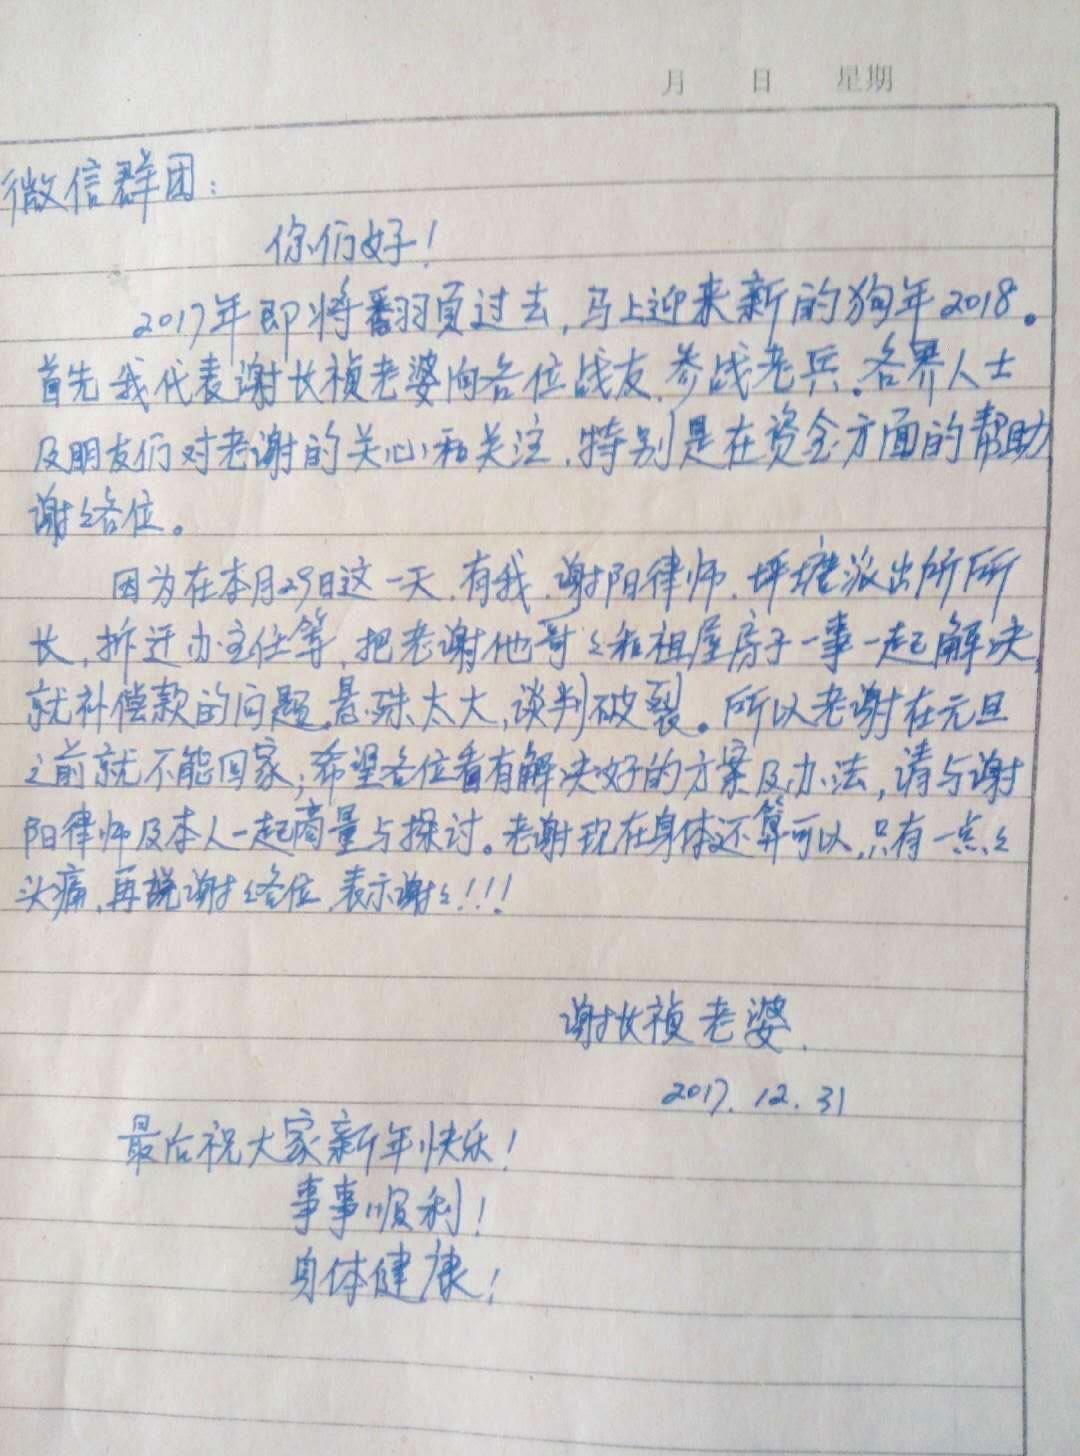 月 日 星期
微信群团:
你们好!
2017年即将翻页过去,马上迎来新的狗年2018。
首先我代表谢长祯老婆向各位战友、参战老兵、各界人士
及朋友们对老谢的关心和关注、特别是在资金方面的帮助
谢谢各位。
因为在本月29日这一天、有我、谢阳律师、坪塘派出所所
长,拆迁办主任等,把老谢他哥哥和祖屋房子一事一起解决,
就补偿款的问题,悬殊太大,谈判破裂。所以老谢在元旦
之前就不能回家;希望各位看有解决好的方案及办法,请与谢
阳律师及本人一起商量与探讨。老谢现在身体还算可以,只有一点点
头痛、再说谢谢各位、表示谢谢!!!
谢长祯老婆.
2017.12.31
最后祝大家新年快乐!
事事顺利!
身体健康!